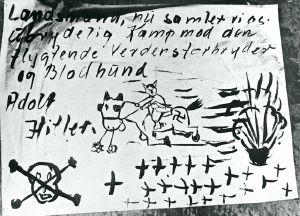 Landsmænd, nu samler vi os.
Ubrydelig Kamp mod den
flygtende Verdensforbryder
og Blodhund
Adolf
Hitler.